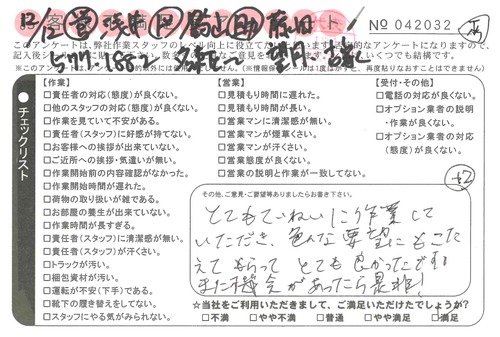 お客様　　　　　ート
No 042032
このアンケートは、弊社作業スタッフのレベル向上に役立てたい
的なアンケートになりますので、
記入後シール
ご意見を
いくつでも結構です。
【作業】
□責任者の対応(態度)が良くない。
□他のスタッフの対応(態度)が良くない。
□作業を見ていて不安がある。
□責任者(スタッフ)に好感が持てない。
□お客様への挨拶が出来ていない。
□ご近所への挨拶・気遣いが無い。
□作業開始前の内容確認がなかった。
□作業開始時間が遅れた。
□荷物の取り扱いが雑である。
□お部屋の養生が出来ていない。
□作業時間が長すぎる。
□責任者(スタッフ)に清潔感が無い。
□責任者(スタッフ)が汗くさい。
□トラックが汚い。
□梱包資材が汚い。
□運転が安(下手)である。
□靴下の履き替えをしてない。
□スタッフにやる気がみられない。
【営業】
□見積もり時間に遅れた。
□見積もり時間が長い。
□営業マンに清潔感が無い。
□営業マンが煙草くさい。
□営業マンが汗くさい。
□営業態度が良くない。
□営業の説明と作業が一致してない。
【受付・その他】
□電話の対応が良くない。
□オプション業者の説明
・作業が良くない。
□オプション業者の対応
(態度)が良くない。
●チェックリスト
その他、ご意見・ご要望等ありましたらお書き下さい。
とてもていねいに作業して
いただき、色んな要望にもこた
えてもらって とても良かったです!
また機会があったら是非!
☆当社をご利用いただきまして、ご満足いただけたでしょうか?
□不満　□やや不満　□普通　□やや満足　□満足